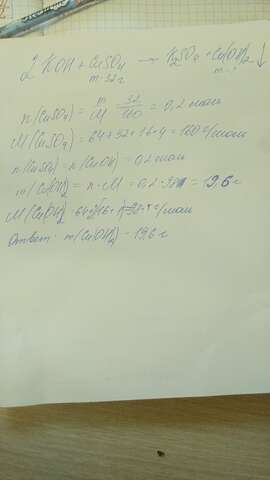 2KOH + CuSO4 → K2SO4 + Cu(OH)2 ↓
m=32г m-?
n(CuSO4) = m/M 32/160 = 0,2 моль
M(CuSO4) = 64+32+16·4 = 160 г/моль
n(CuSO4) = n(CuOH) = 0,2 моль
m(Cu(OH)2 = n·M = 0,2·98 = 19,6 г
M(CuOH)2 = 64+2(16+1)=98 г/моль
Ответ: m(CuOH)2 - 19,6 г